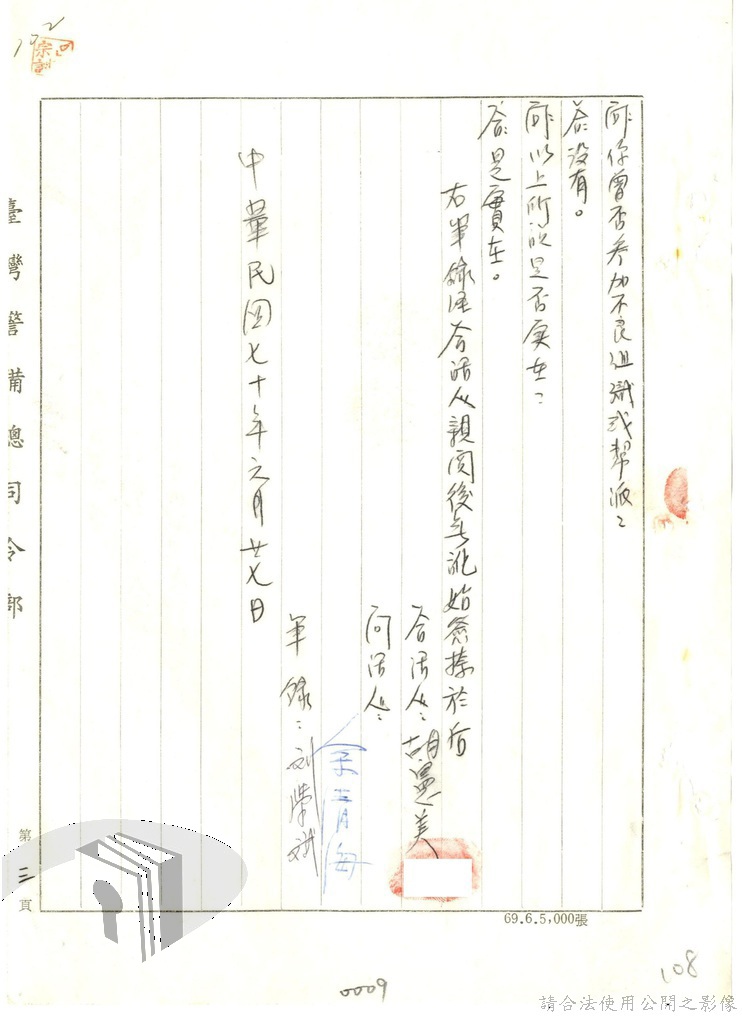 問：你曾否參加不良組識或幫派？
答：沒有。
問：以上所說是否實在？
答：是實在。
右筆錄經答話人親閱後無訛始簽捺於后
答話人：胡慧美
問話人：
余青海
筆錄：刘榮斌
中華民国七十年六月廿七日
臺灣警備總司令部
第三頁
69.6.5,000張
0009
108
請合法使用公開之影像